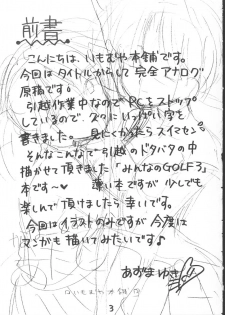 前書
こんにちは、いもむや本舗です。
今回はタイトルからして完全アナログ
原稿です。
引越作業中なのでPCをストップ
しているので、ズタにいっぱい字を
書きました。見にくかったらスイマセン
そんなこんなで引越のドタバタの中
描かせて頂きました「みんなのGOLF3」
本です〜♥ 薄い本ですが少しでも
楽しんで頂けましたら幸いです。
今回はイラストのみですが今度は
マンガも描いてみたいです♪
あずまゆき
いもむや本舗
3